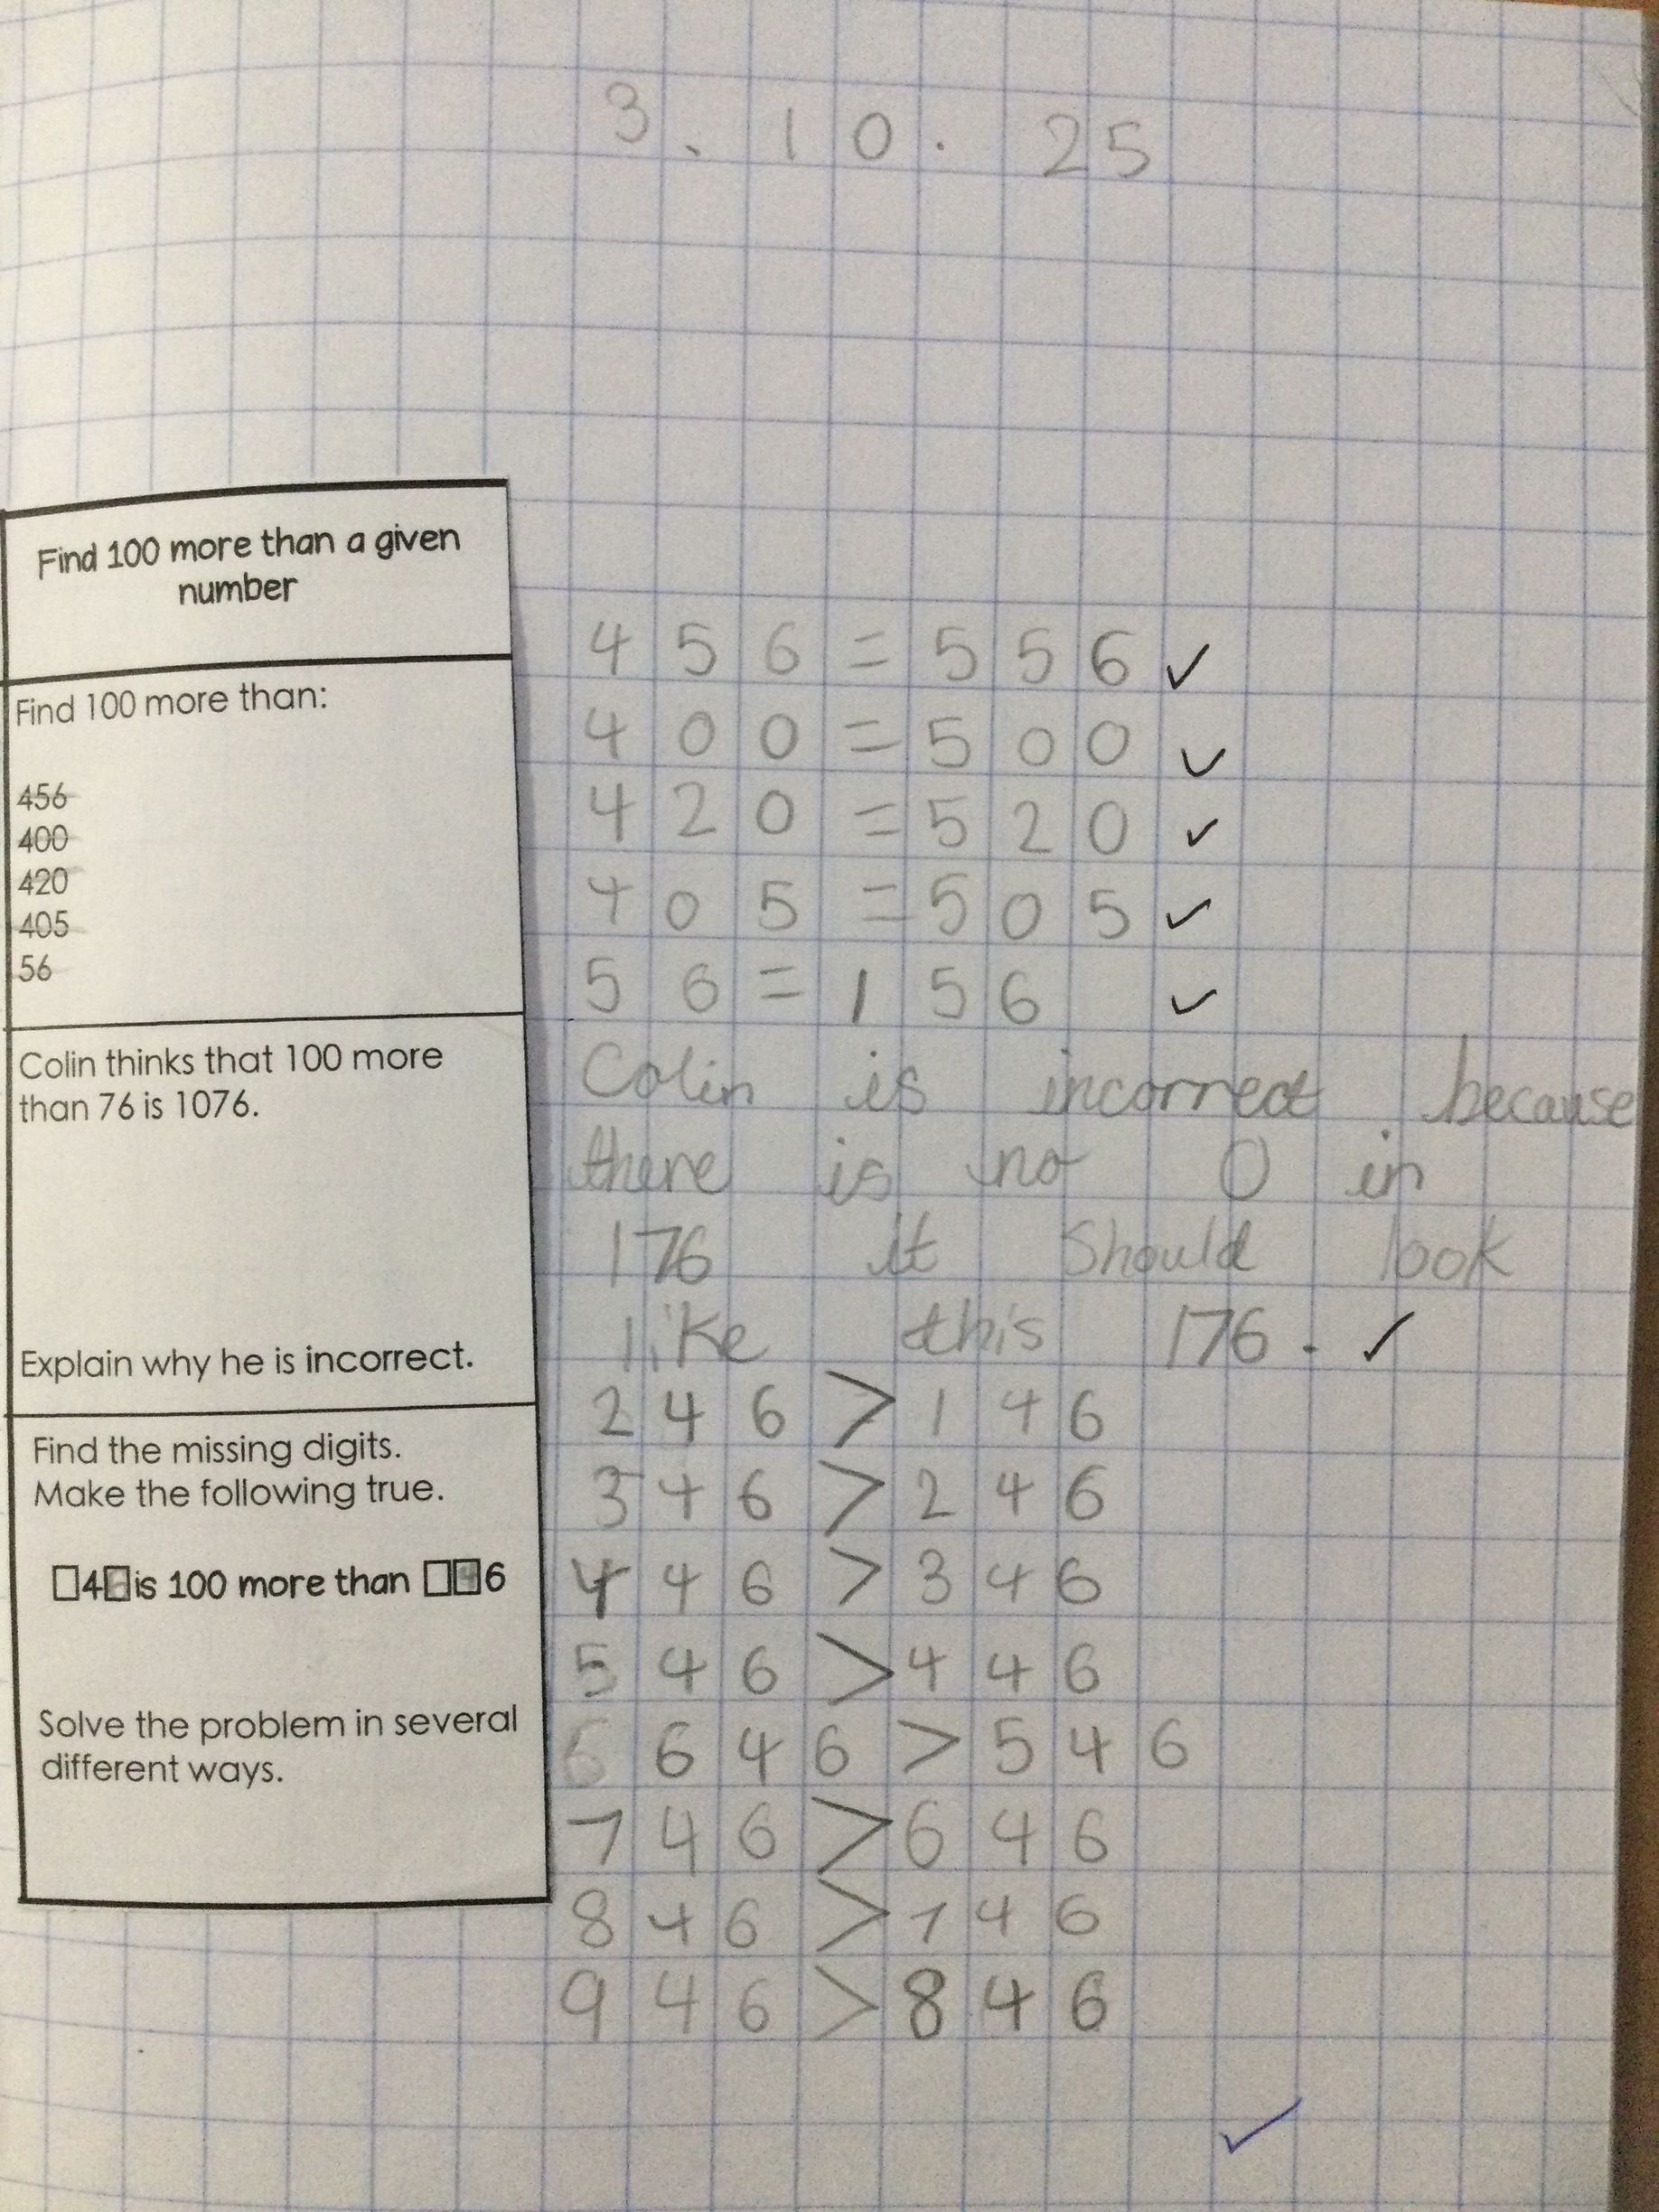 3. 10. 25
Find 100 more than a given
number
Find 100 more than:
456
400
420
405
56
456 = 556 ✓
400 = 500 ✓
420 = 520 ✓
405 = 505 ✓
56 = 156 ✓
Colin thinks that 100 more
than 76 is 1076.
Explain why he is incorrect.
Colin is incorrect because
there is no 0 in
176 it should look
like this 176. ✓
Find the missing digits.
Make the following true.
□4□ is 100 more than □□6
Solve the problem in several
different ways.
246 > 146
346 > 246
446 > 346
546 > 446
646 > 546
746 > 646
846 > 746
946 > 846
✓